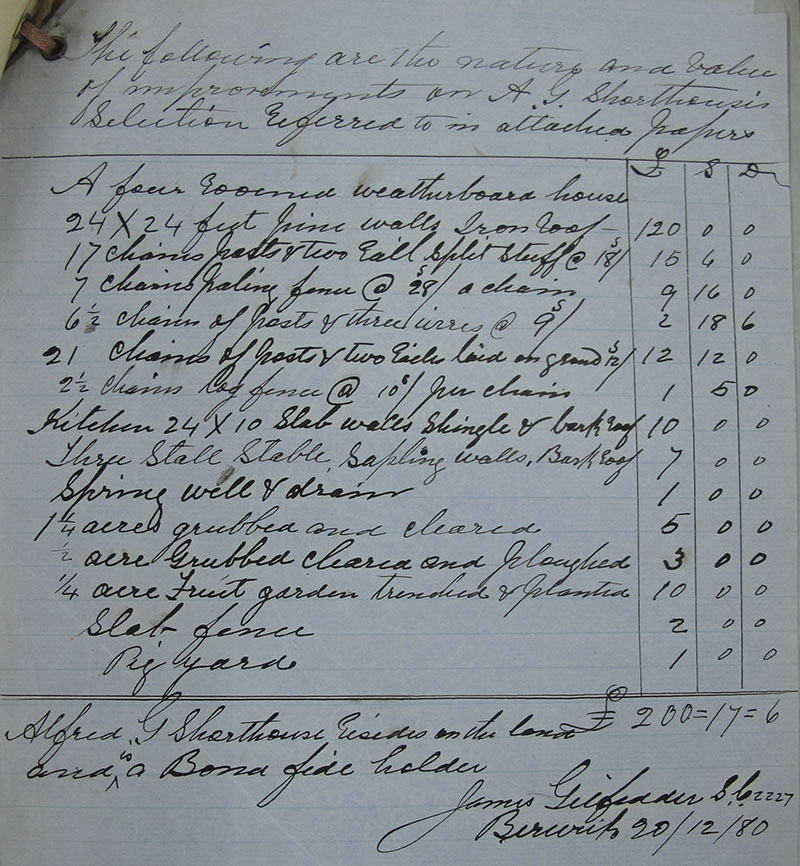 The following are the nature and value
of improvments on A. G Shorthouse's
Selection Referred to in attached papers
£ S D
A four Roomed weatherboard house
24 X 24 feet pine walls Iron Roof - 120 0 0
17 chains posts & two Rail Split Stuff @ 18s/ 15 6 0
7 chains paling fence @ 28s/ a chain 9 16 0
6 1/2 chains of posts & three wires @ 9s/ 2 18 6
21 chains of posts & two Rails laid on ground 12s/ 12 12 0
2 1/2 chains log fence @ 10s/ per chain 1 5 0
Kitchen 24 X 10 Slab walls Shingle & bark Roof 10 0 0
Three Stall Stable, Sapling walls, Bark Roof 7 0 0
Spring well & drain 1 0 0
1 1/4 acres grubbed and cleared 5 0 0
1/2 acre Grubbed cleared and ploughed 3 0 0
1/4 acre Fruit garden trenched & planted 10 0 0
Slab fence 2 0 0
Pig yard 1 0 0
£ 200=17=6
Alfred. G Shorthouse Resides on the land
and is a Bona fide holder
James Gilfedder S.C. 2227
Berwick 20/12/80